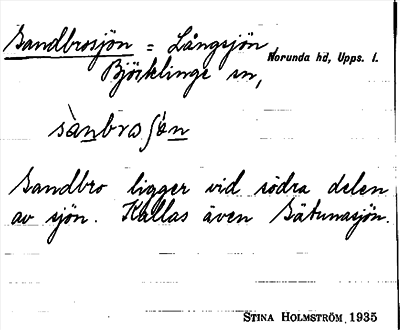 Sandbrosjön = Långsjön,
Björklinge sn, Norunda hd, Upps. l.
sànbra ʃö́n
Sandbro ligger vid södra delen
av sjön. Kallas även Sätunasjön.
STINA HOLMSTRÖM 1935